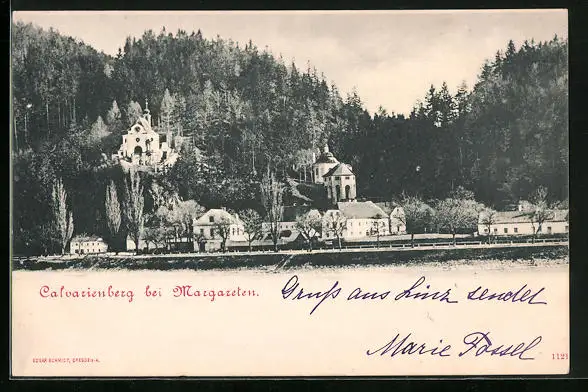 Calvarienberg bei Margareten.
Gruß aus Linz sendet
Marie Possel
EDGAR SCHMIDT, DRESDEN-A.
1121